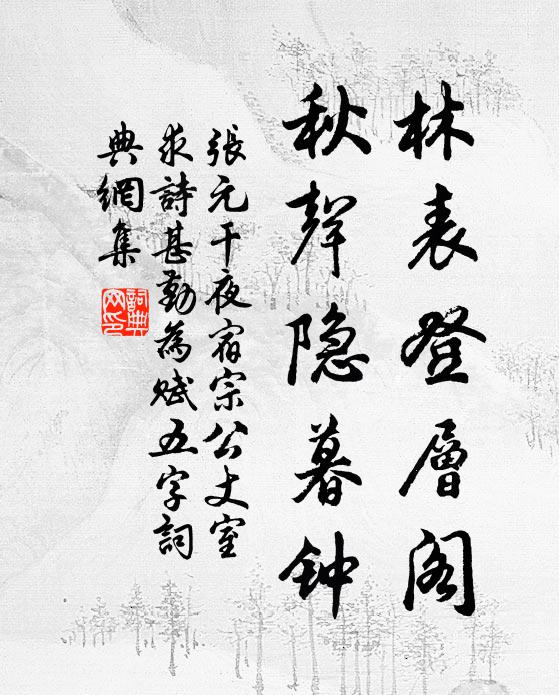 林表登層阁
秋聲隐暮钟
張元干夜宿宗公丈室
求詩甚勤為赋五字詞
典網集
詞典
网印